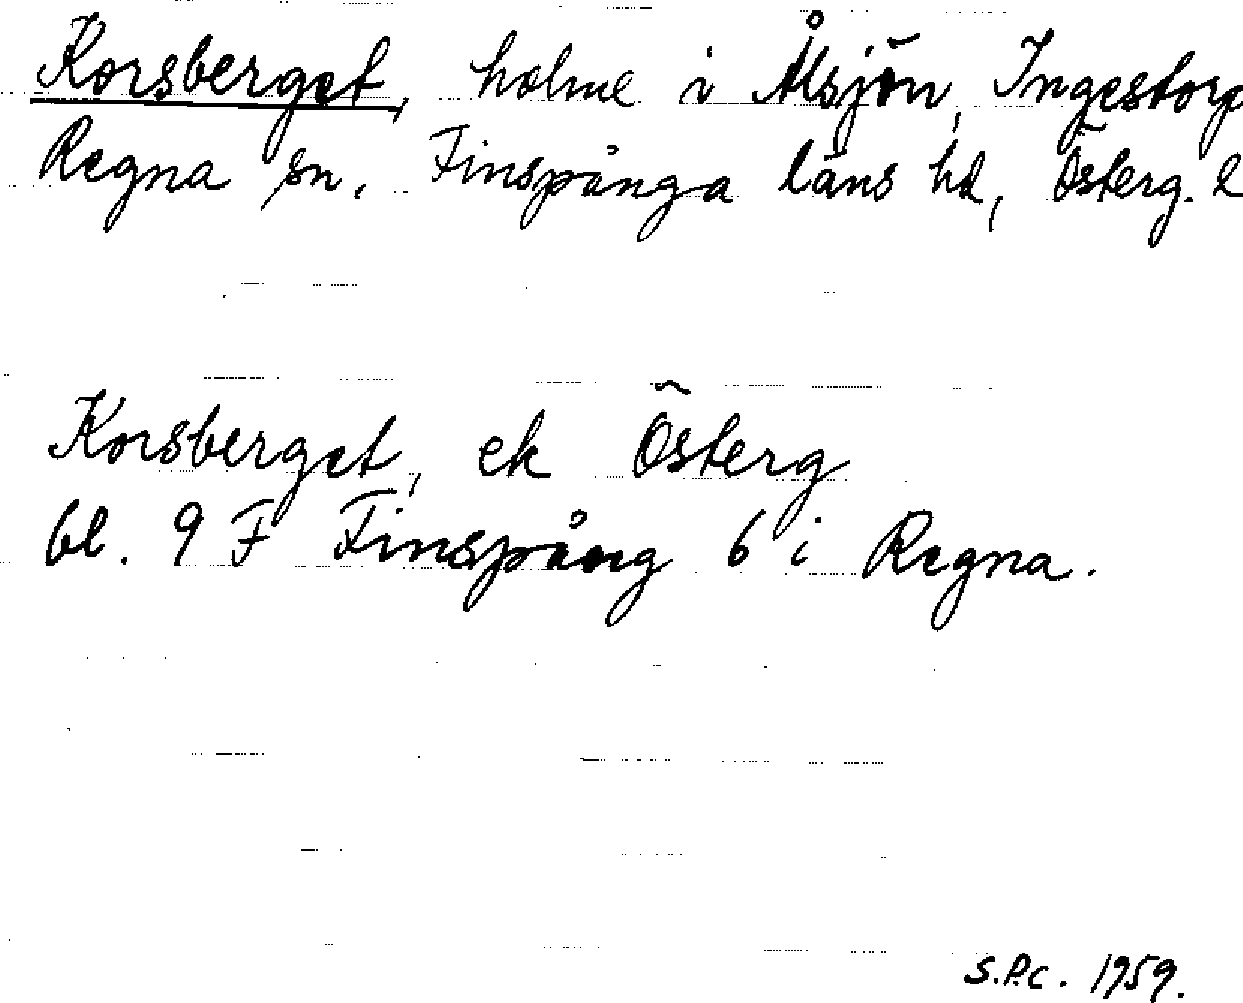 Korsberget, holme i Ålsjön, Ingestorp
Regna sn. Finspånga läns hd, Österg. l
Korsberget, ek Österg
bl. 9 F Finspång 6 i Regna.
S.P.C. 1959.